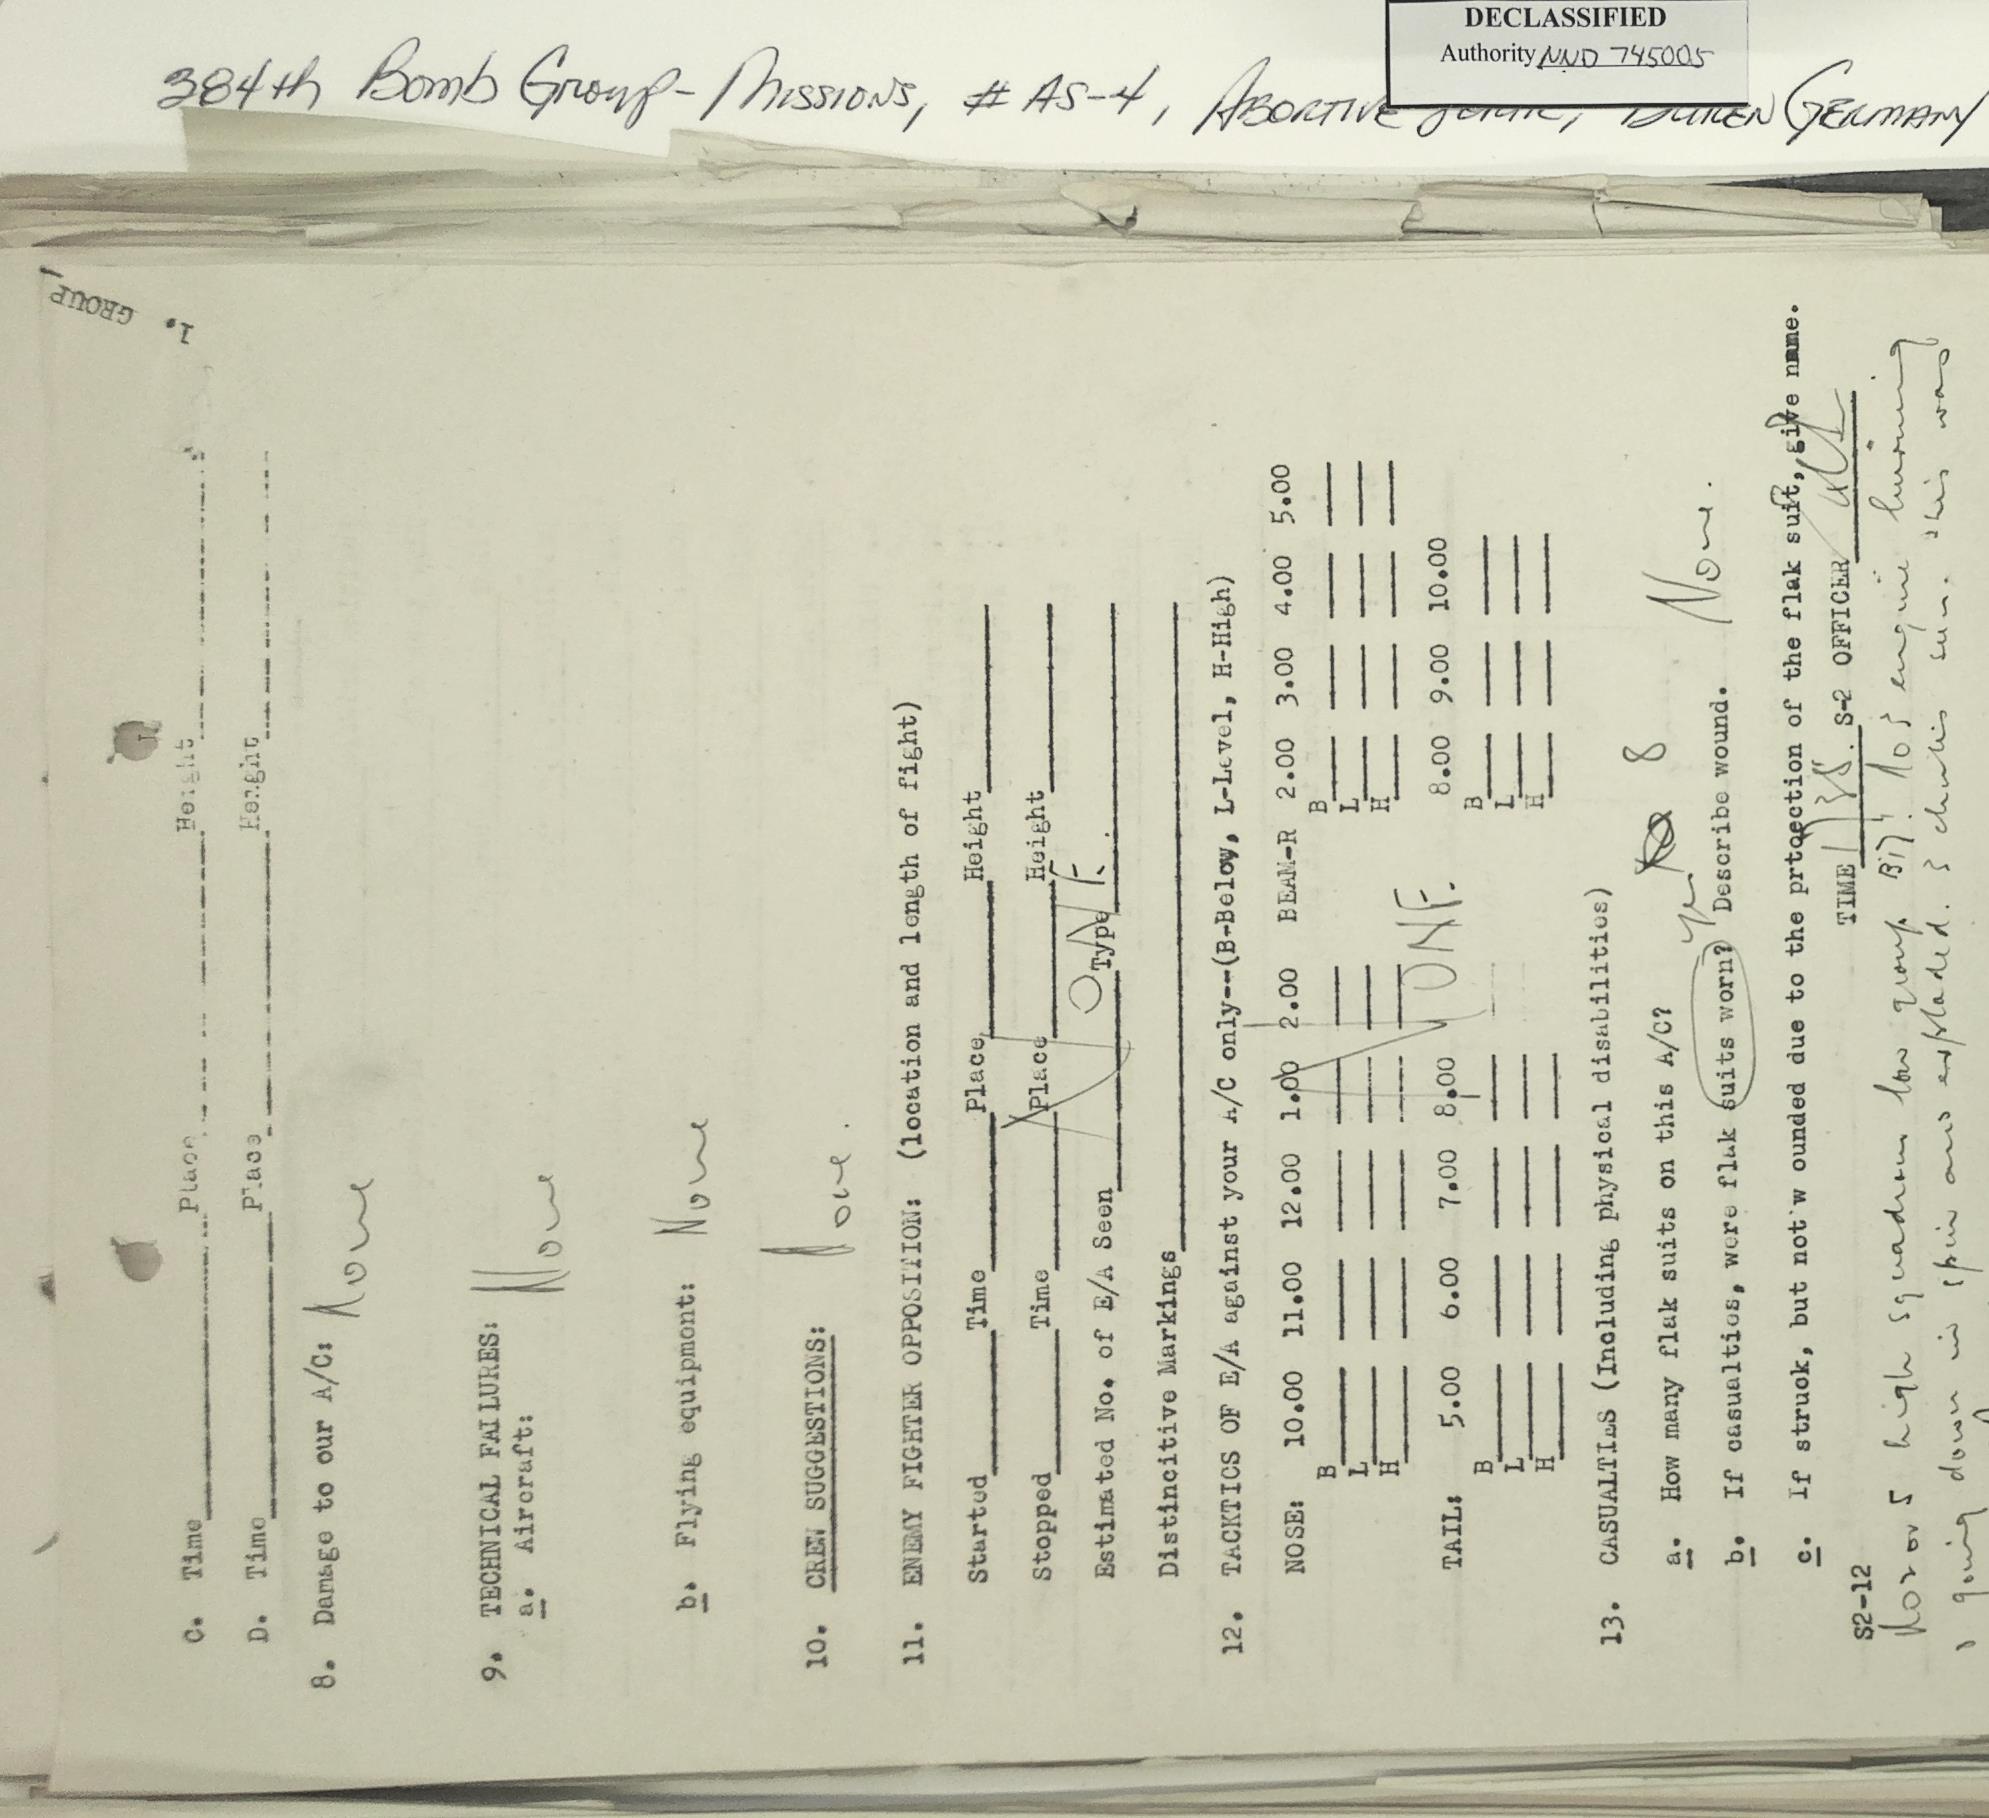 DECLASSIFIED
Authority NND 745005
384th Bomb Group - Missions, # AS-4, ABORTIVE GERMANY
1. GROUP
C. Time Place Height
D. Time Place Height
8. Damage to our A/C: None
9. TECHNICAL FAILURES:
a. Aircraft: None
b. Flying equipmont: None
10. CREW SUGGESTIONS: None.
11. ENEMY FIGHTER OPPOSITION: (location and length of fight)
Started Time Place Height
Stopped Time Place Height
NONE.
Estimated No. of E/A Seen Type
Distincitive Markings
12. TACKTICS OF E/A against your A/C only--(B-Below, L-Level, H-High)
NOSE: 10.00 11.00 12.00 1.00 2.00 BEAM-R 2.00 3.00 4.00 5.00
B B
L L
H H
NONE.
TAIL: 5.00 6.00 7.00 8.00 8.00 9.00 10.00
B B
L L
H H
13. CASUALTIES (Including physical disabilities)
a. How many flak suits on this A/C? 8
b. If casualties, were flak suits worn? yes Describe wound. None.
c. If struck, but not w ounded due to the prtoection of the flak suit, give nmme.
S2-12 TIME S-2 OFFICER
No 2 or 5 high squadron low group B17 engine burning
going down in spin and exploded. 3 chutes seen. this was